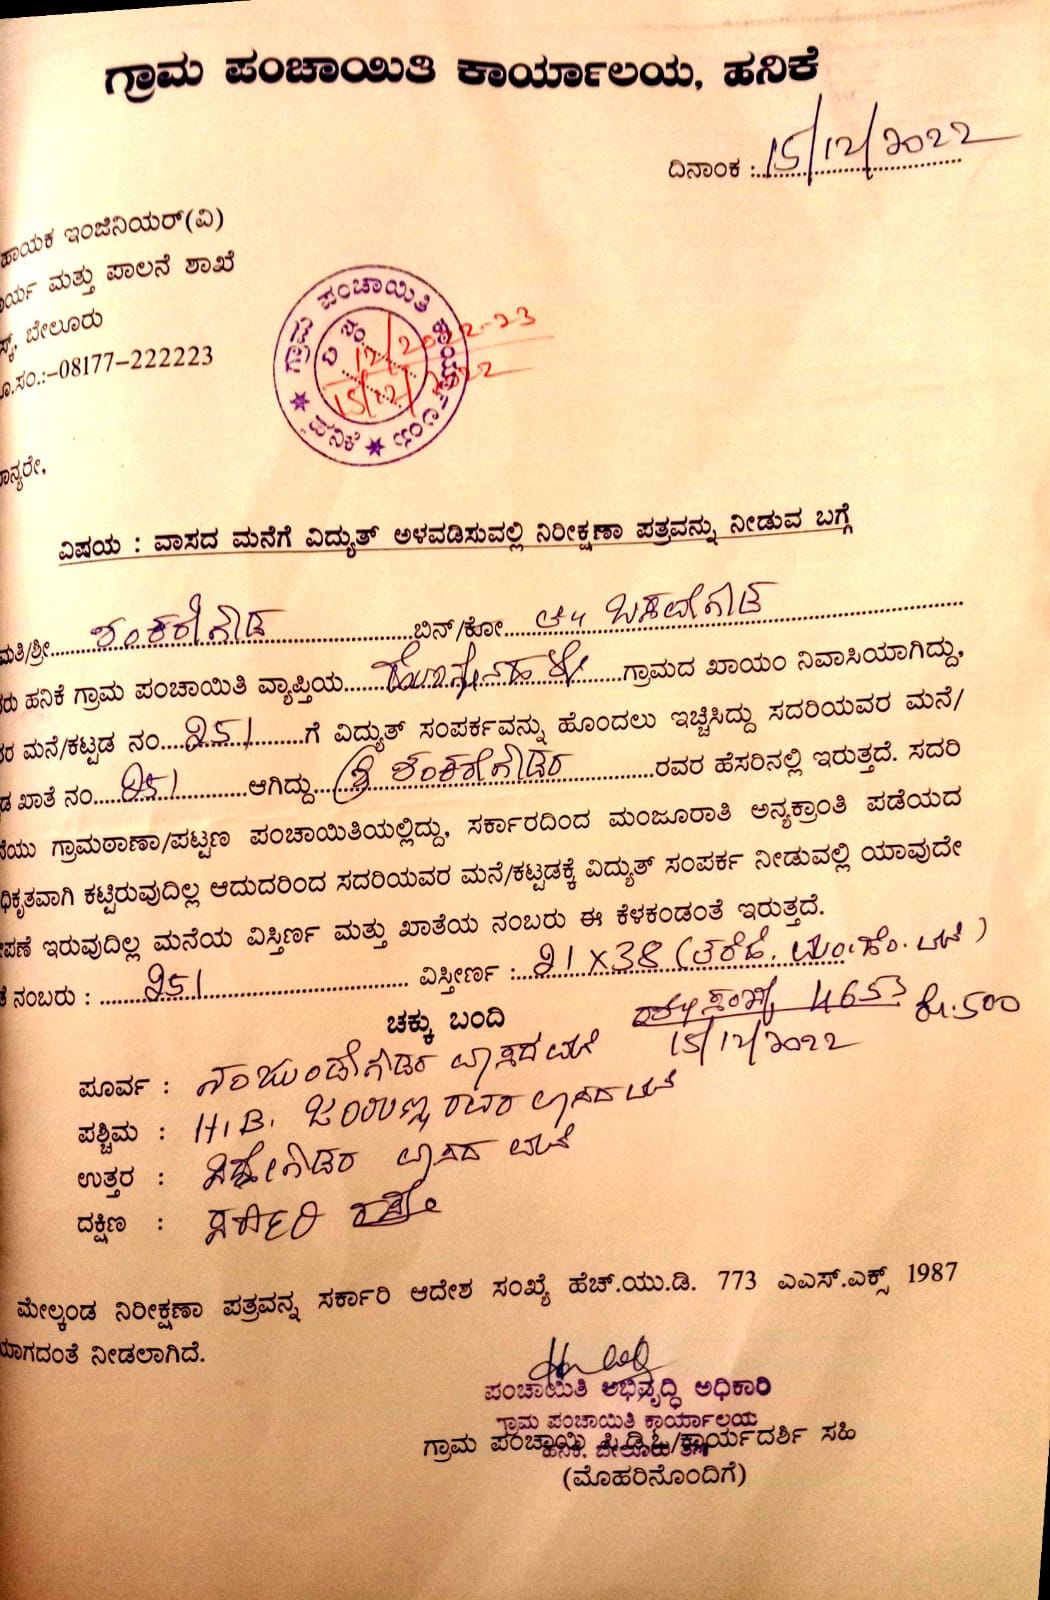 ಗ್ರಾಮ ಪಂಚಾಯಿತಿ ಕಾರ್ಯಾಲಯ, ಹನಿಕೆ
ದಿನಾಂಕ : 15/12/2022
ಹಾಯಕ ಇಂಜಿನಿಯರ್(ವಿ)
ರ್ಯ ಮತ್ತು ಪಾಲನೆ ಶಾಖೆ
ಬೇಲೂರು
ಸಂ.:-08177-222223
ಗ್ರಾಮ ಪಂಚಾಯಿತಿ ಕಾರ್ಯಾಲಯ ಹನಿಕೆ
ವಿ ನಂ. 12/2022-23
15/12/2022
ನ್ಯರೇ,
ವಿಷಯ : ವಾಸದ ಮನೆಗೆ ವಿದ್ಯುತ್ ಅಳವಡಿಸುವಲ್ಲಿ ನಿರೀಕ್ಷಣಾ ಪತ್ರವನ್ನು ನೀಡುವ ಬಗ್ಗೆ
ಮತಿ/ಶ್ರೀ ಶಂಕರೇಗೌಡ ಬಿನ್/ಕೋ ಬಸವೇಗೌಡ
ರು ಹನಿಕೆ ಗ್ರಾಮ ಪಂಚಾಯಿತಿ ವ್ಯಾಪ್ತಿಯ ಗ್ರಾಮದ ಖಾಯಂ ನಿವಾಸಿಯಾಗಿದ್ದು,
ರ ಮನೆ/ಕಟ್ಟಡ ನಂ. 251 ಗೆ ವಿದ್ಯುತ್ ಸಂಪರ್ಕವನ್ನು ಹೊಂದಲು ಇಚ್ಚಿಸಿದ್ದು ಸದರಿಯವರ ಮನೆ/
ಡ ಖಾತೆ ನಂ. 251 ಆಗಿದ್ದು ಶ್ರೀ ಶಂಕರೇಗೌಡರ ರವರ ಹೆಸರಿನಲ್ಲಿ ಇರುತ್ತದೆ. ಸದರಿ
ಯು ಗ್ರಾಮಠಾಣಾ/ಪಟ್ಟಣ ಪಂಚಾಯಿತಿಯಲ್ಲಿದ್ದು, ಸರ್ಕಾರದಿಂದ ಮಂಜೂರಾತಿ ಅನ್ಯಕ್ರಾಂತಿ ಪಡೆಯದ
ಧಿಕೃತವಾಗಿ ಕಟ್ಟಿರುವುದಿಲ್ಲ ಆದುದರಿಂದ ಸದರಿಯವರ ಮನೆ/ಕಟ್ಟಡಕ್ಕೆ ವಿದ್ಯುತ್ ಸಂಪರ್ಕ ನೀಡುವಲ್ಲಿ ಯಾವುದೇ
ಪಣೆ ಇರುವುದಿಲ್ಲ ಮನೆಯ ವಿಸ್ತಿರ್ಣ ಮತ್ತು ಖಾತೆಯ ನಂಬರು ಈ ಕೆಳಕಂಡಂತೆ ಇರುತ್ತದೆ.
ನಂಬರು : 251 ವಿಸ್ತೀರ್ಣ : 21X38
ಚಕ್ಕು ಬಂದಿ 4653 ರೂ.500
15/12/2022
ಪೂರ್ವ : ನಂಜುಂಡೇಗೌಡರ ವಾಸದ ಮನೆ
ಪಶ್ಚಿಮ : H.B. ಜಯಣ್ಣ ರವರ ವಾಸದ ಮನೆ
ಉತ್ತರ : ಸಿದ್ದೇಗೌಡರ ವಾಸದ ಮನೆ
ದಕ್ಷಿಣ : ಸರ್ಕಾರಿ ರಸ್ತೆ
ಮೇಲ್ಕಂಡ ನಿರೀಕ್ಷಣಾ ಪತ್ರವನ್ನ ಸರ್ಕಾರಿ ಆದೇಶ ಸಂಖ್ಯೆ ಹೆಚ್.ಯು.ಡಿ. 773 ಎಎಸ್.ಎಕ್ಸ್ 1987
ಯಾಗದಂತೆ ನೀಡಲಾಗಿದೆ.
ಪಂಚಾಯಿತಿ ಅಭಿವೃದ್ಧಿ ಅಧಿಕಾರಿ
ಗ್ರಾಮ ಪಂಚಾಯಿತಿ ಕಾರ್ಯಾಲಯ
ಗ್ರಾಮ ಪಂಚಾಯಿ ಪಿ.ಡಿ.ಓ/ಕಾರ್ಯದರ್ಶಿ ಸಹಿ
ಹನಿಕೆ. ಬೇಲೂರು ತಾ||
(ಮೊಹರಿನೊಂದಿಗೆ)